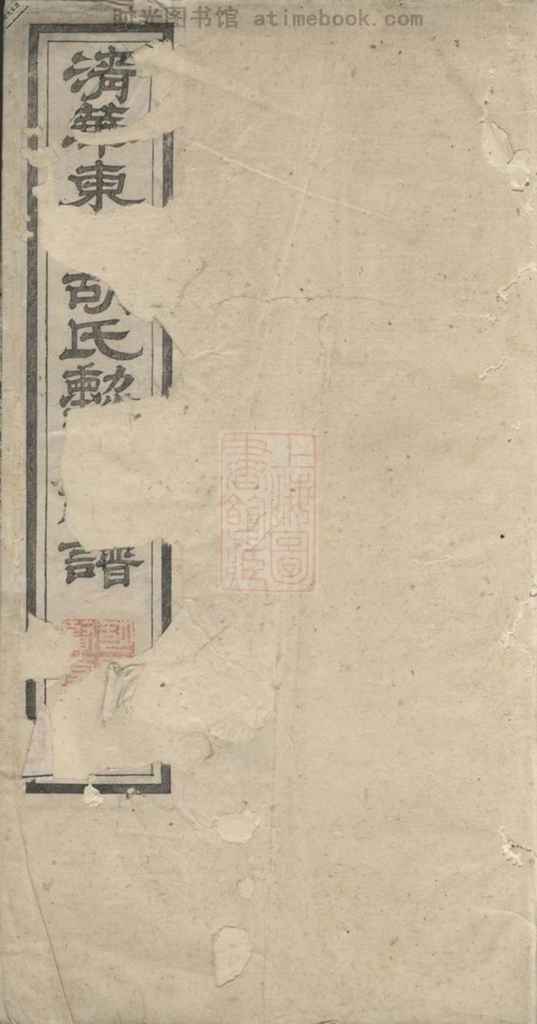 时光图书馆 atimebook.com
清華東
胡氏勳
譜
上海圖
書館藏